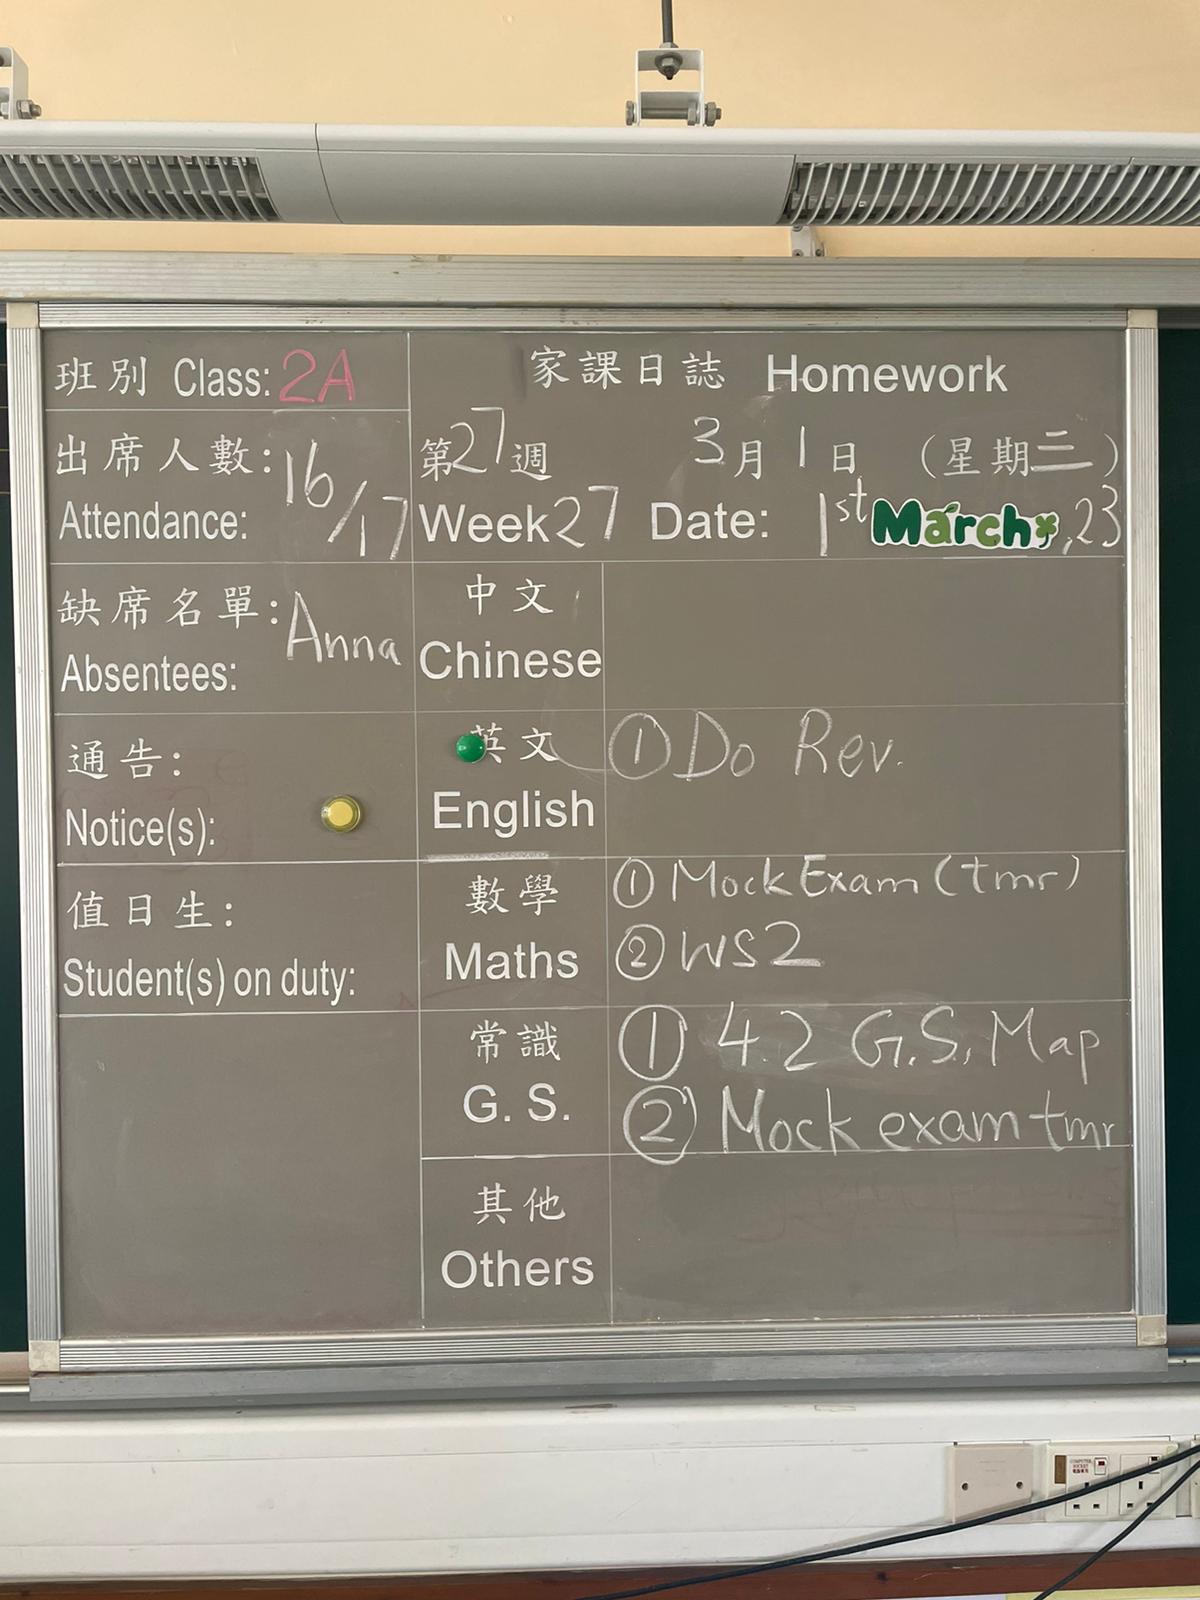 班別 Class: 2A
家課日誌 Homework
出席人數: 16/17
Attendance:
第27週 3月1日 (星期三)
Week 27 Date: 1st March, 23
缺席名單: Anna
Absentees:
中文
Chinese
通告:
Notice(s):
英文 ① Do Rev.
English
值日生:
Student(s) on duty:
數學 ① Mock Exam (tmr)
Maths ② WS2
常識 ① 4.2 G.S. Map
G. S. ② Mock exam tmr
其他
Others
COMPUTER
SOCKET